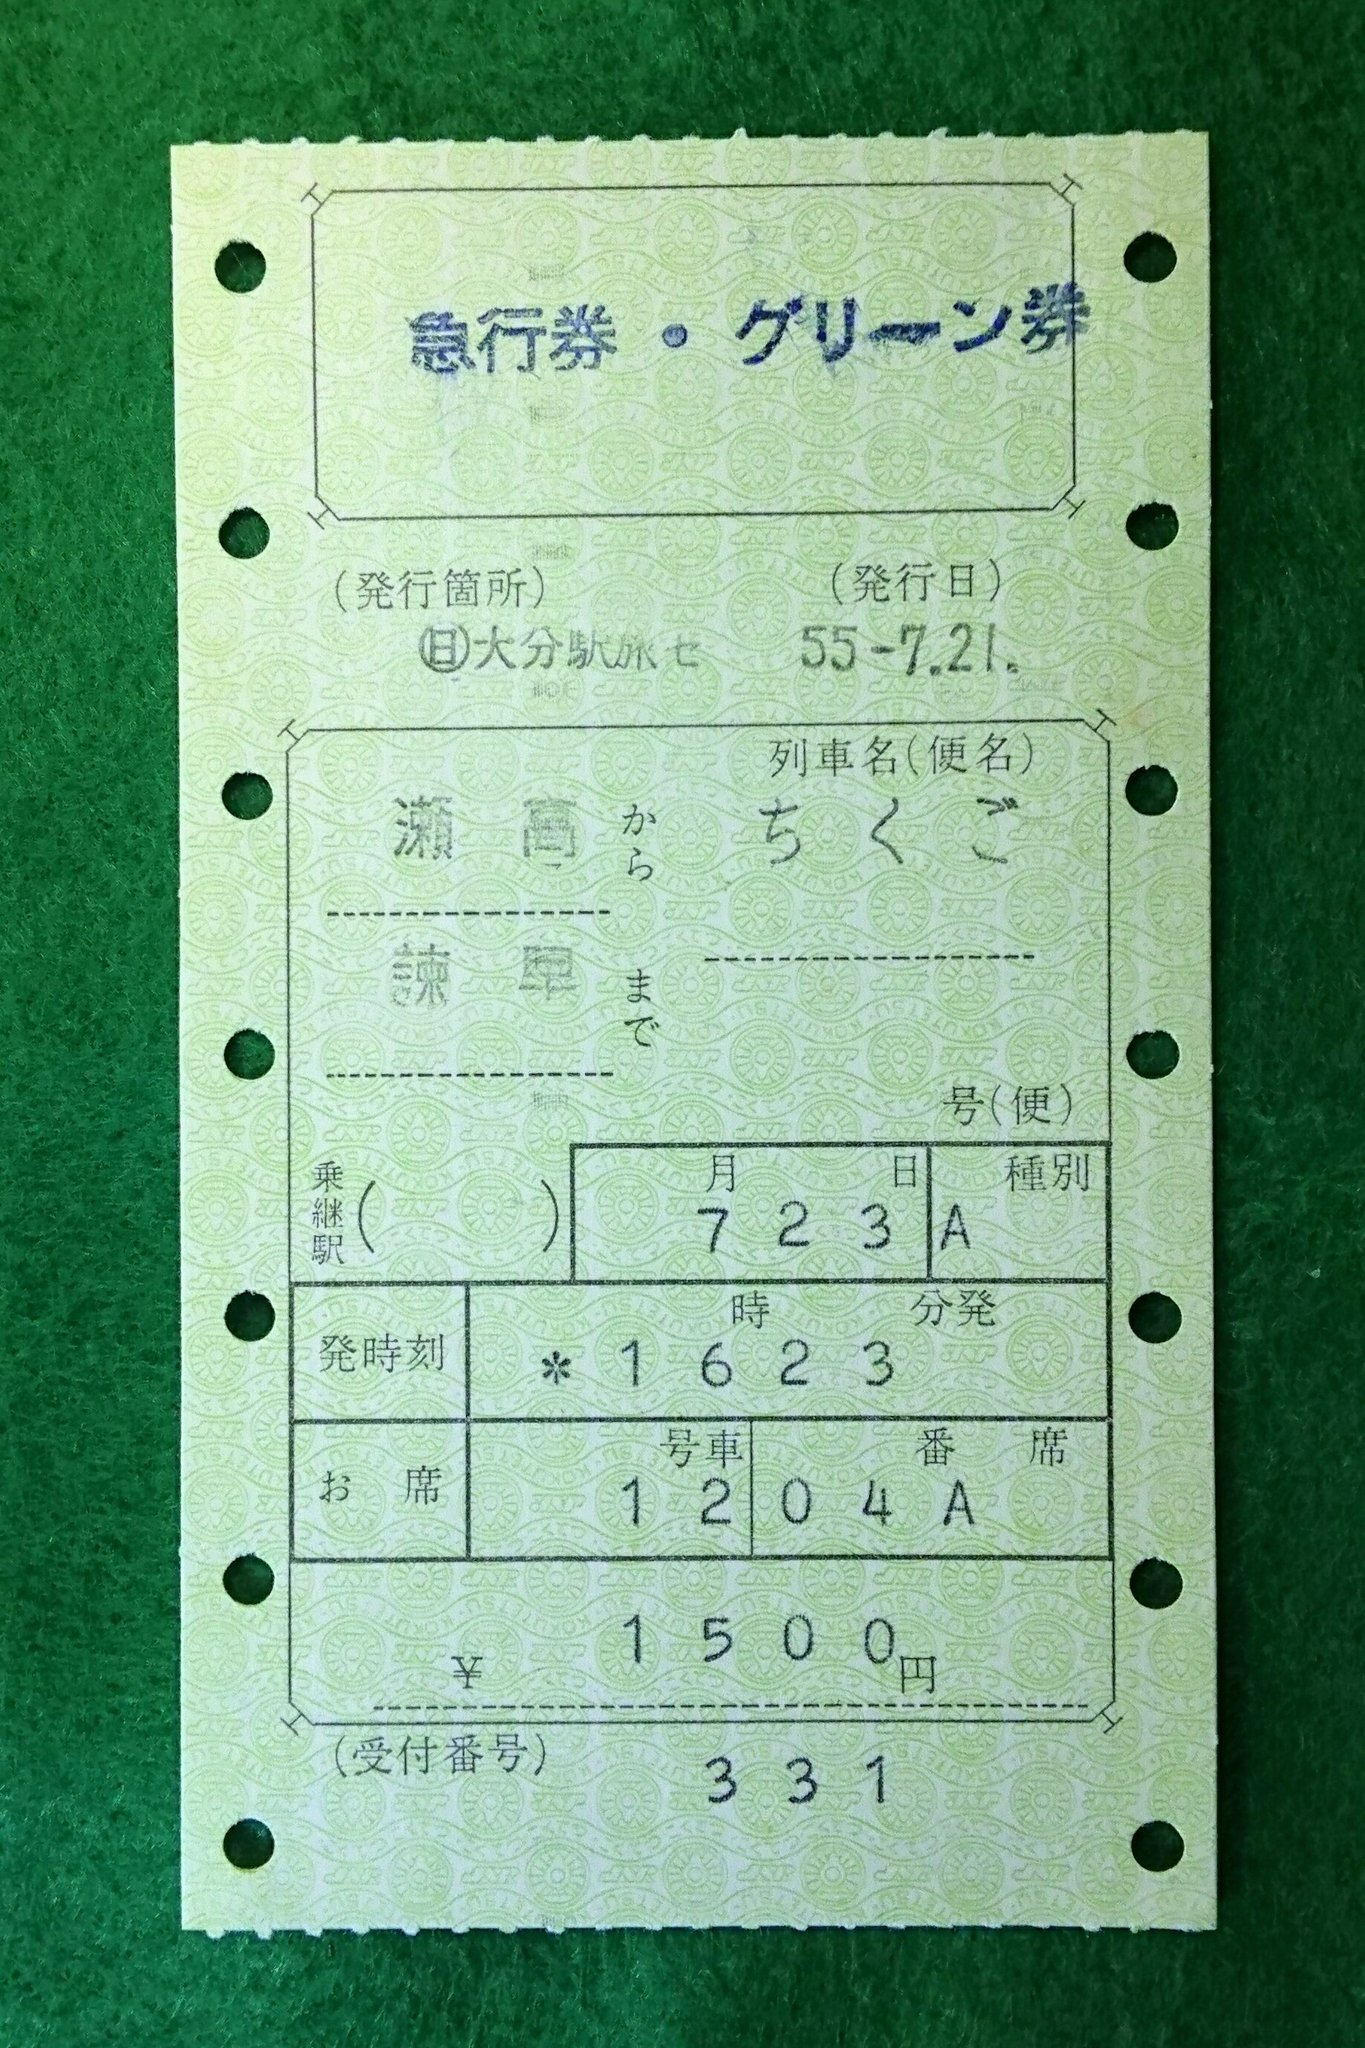 急行券・グリーン券
(発行箇所) (発行日)
㊐大分駅旅セ 55-7.21.
列車名(便名)
瀬高から ちくご
諫早まで
号(便)
乗継駅( )
月 日 種別
7 23 A
発時刻 時 分発
*1623
お席 号車 番席
12 04A
¥1500円
(受付番号) 331